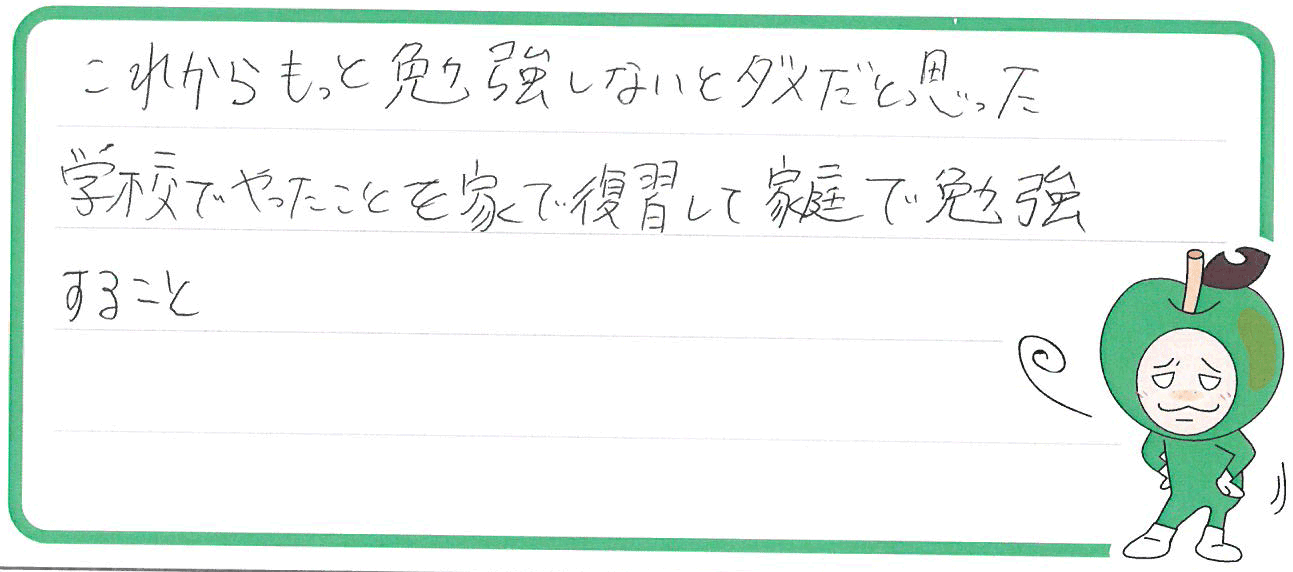 これからもっと勉強しないとダメだと思った
学校でやったことを家で復習して家庭で勉強
すること